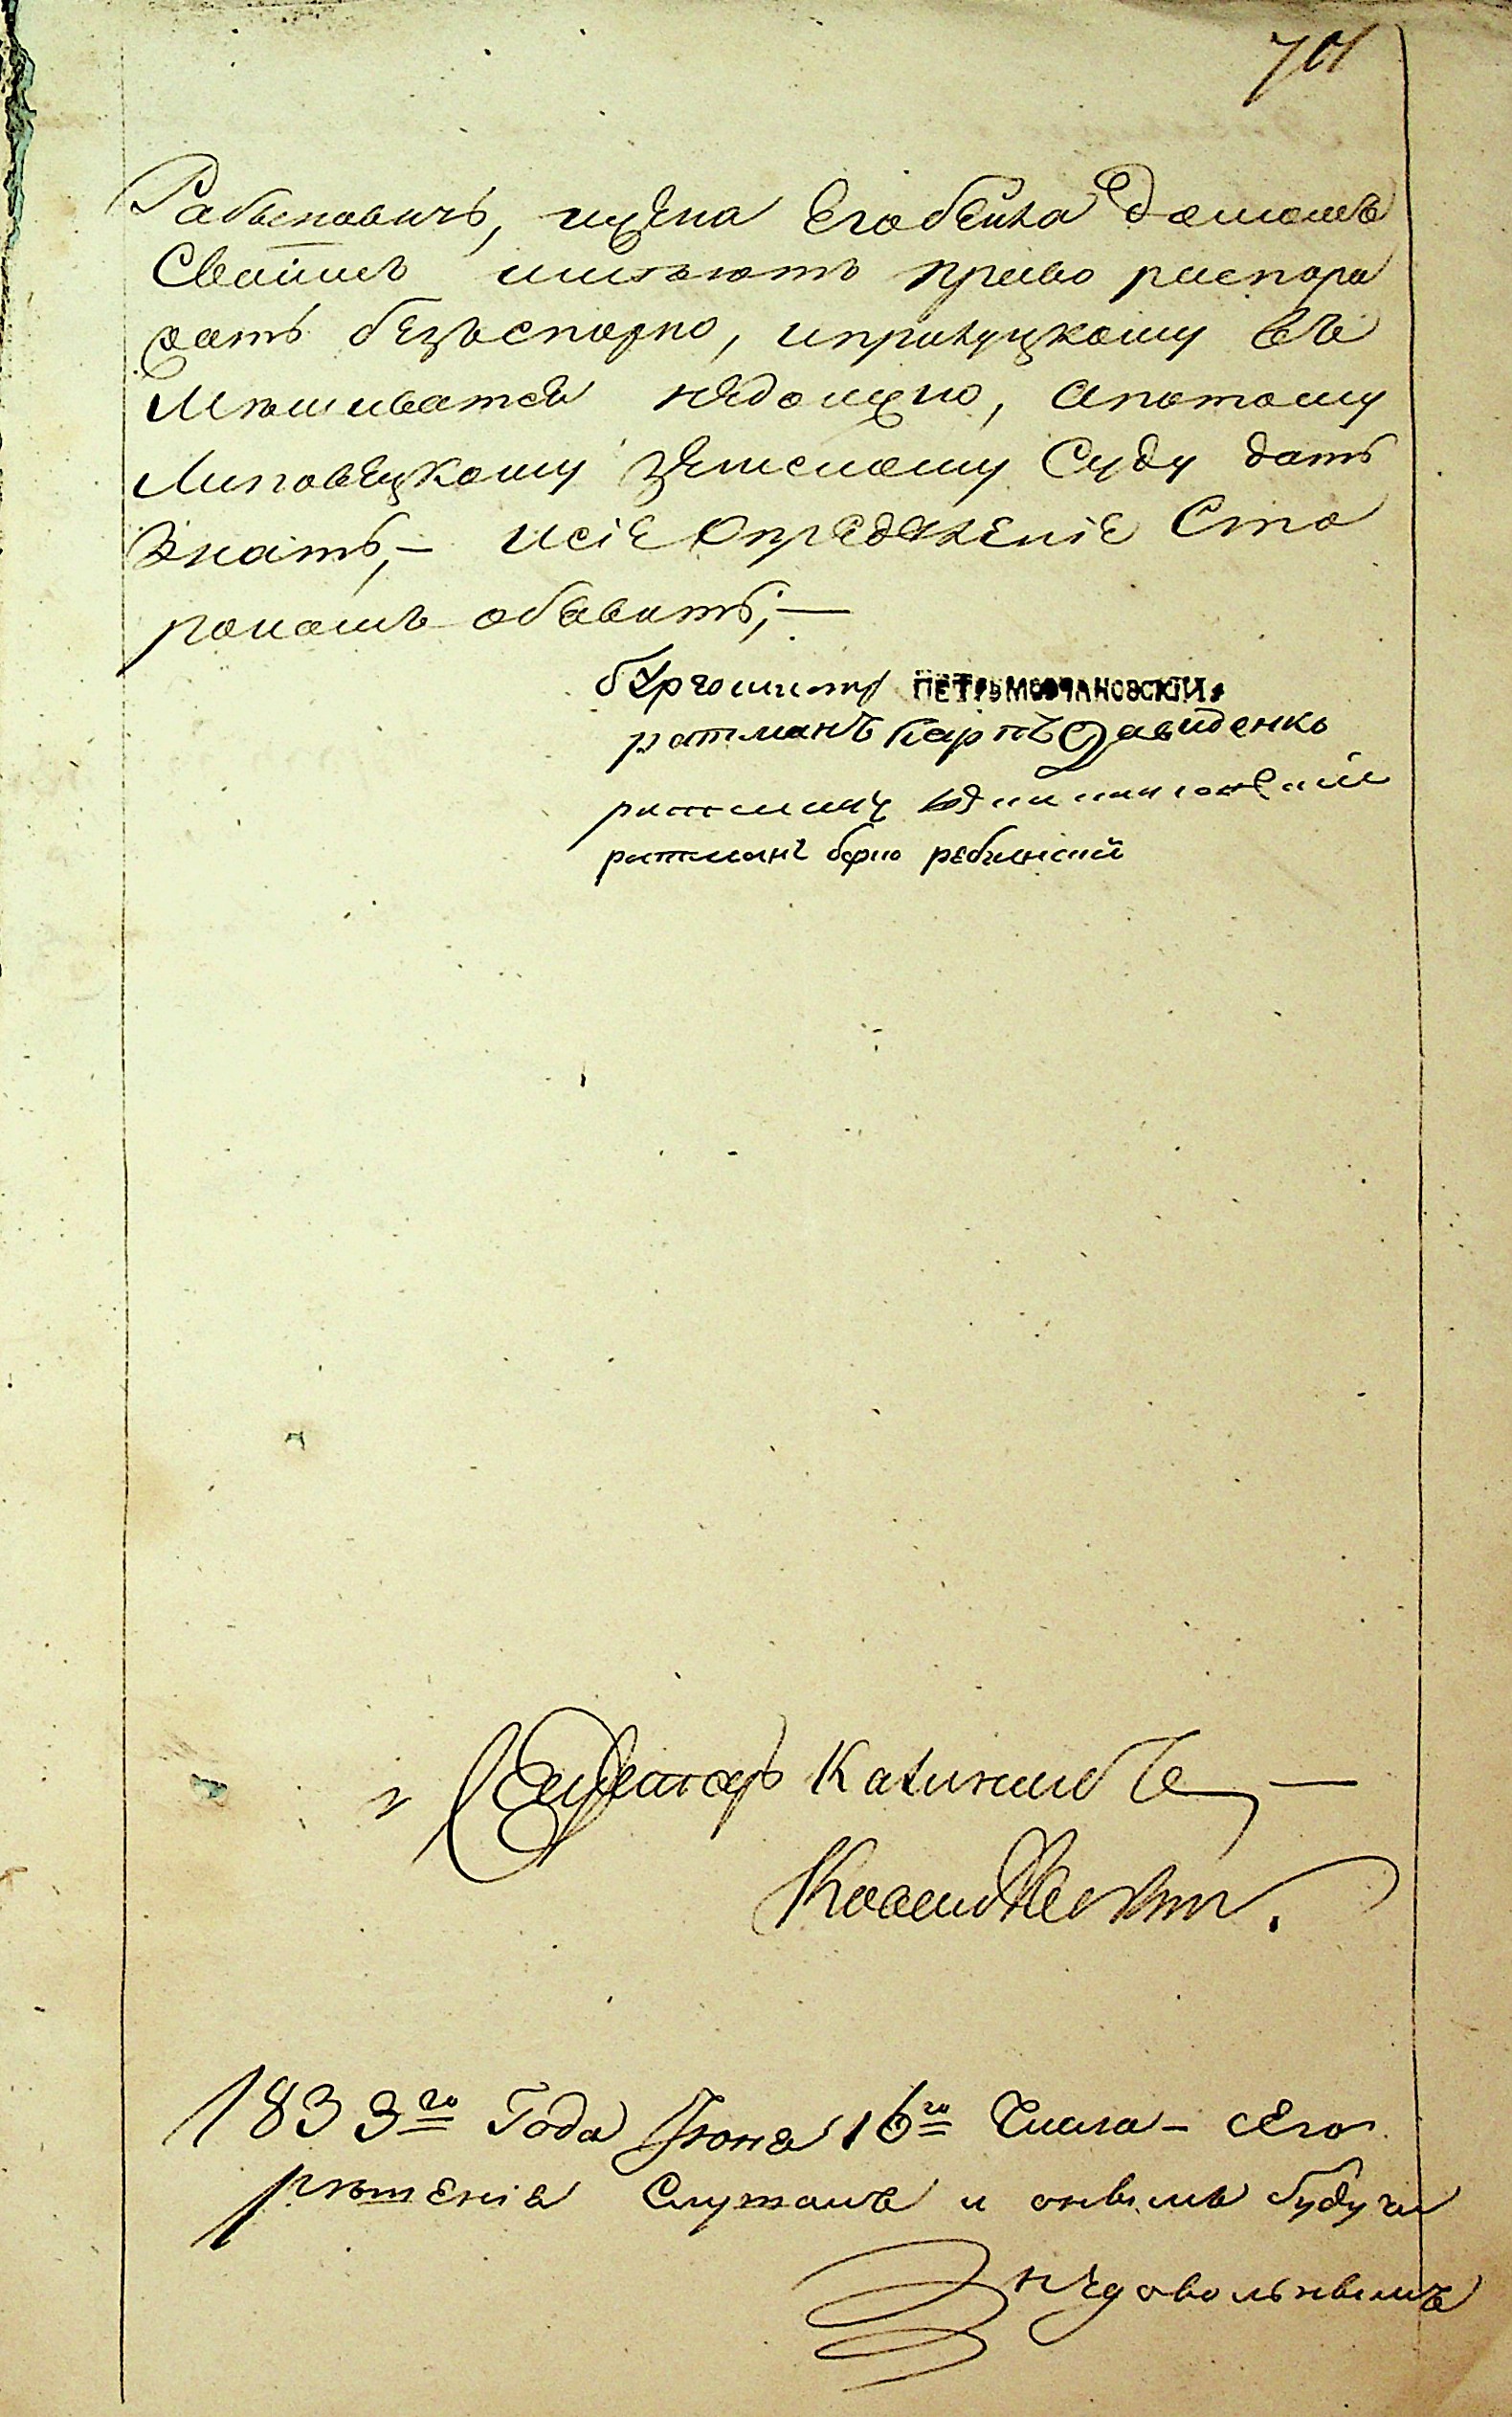 701
Рабиновичъ, ижена Егобейла домомъ
Своимъ имѣютъ право распоря
жать безъспорно, иприлуцкому въ
Мѣшиватся недолжно, апотому
Липовецкому Земскому Суду дать
Знать, — исіе Опредѣленіе Сто
ронамъ обявить, —
бургомистр ПЕТРЪ МОВЧАНОВСКІЙ
ратманъ Карпъ Давиденко
ратманъ
ратманъ берко
Секретарь
1833го Года Іюня 16го Числа — сего
рѣшенія Слушалъ и онымъ будучи
недовольнымъ